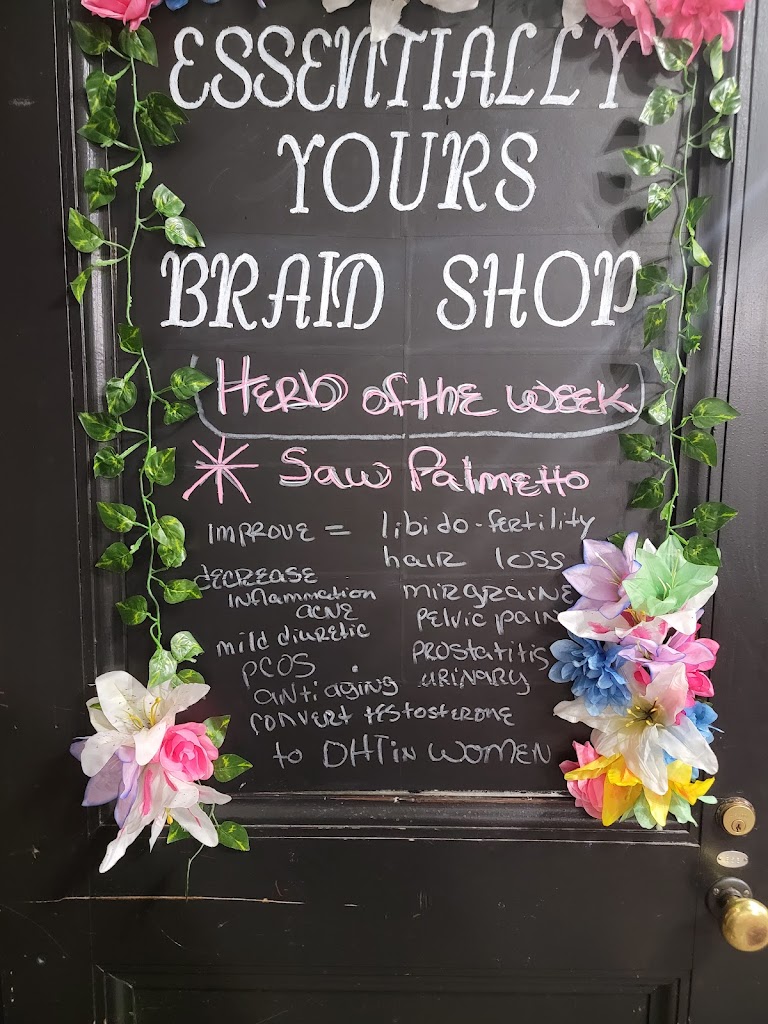 ESSENTIALLY
YOURS
BRAID SHOP
Herb of the week
* Saw Palmetto
improve = libido-fertility
hair loss
decrease
inflammation
acne
mirgraine
pelvic pain
mild diuretic
prostatitis
PCOS
urinary
anti aging
convert testosterone
to DHT in women